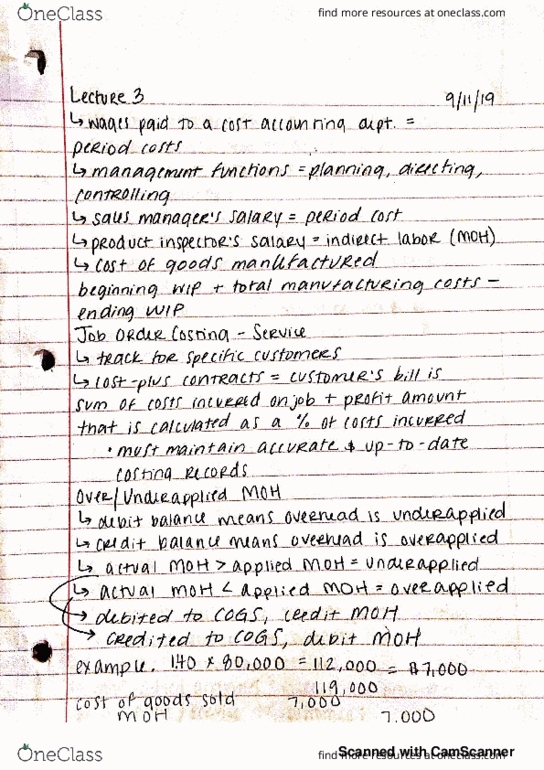 OneClass
find more resources at oneclass.com
Lecture 3 9/11/19
↳ wages paid to a cost accounting dept. =
period costs
↳ management functions = planning, directing,
controlling
↳ sales manager's salary = period cost
↳ product inspector's salary = indirect labor (MOH)
↳ cost of goods manufactured
beginning WIP + total manufacturing costs -
ending WIP
Job Order Costing - Service
↳ track for specific customers
↳ cost-plus contracts = customer's bill is
sum of costs incurred on job + profit amount
that is calculated as a % of costs incurred
• must maintain accurate & up-to-date
costing records
Over/Underapplied MOH
↳ debit balance means overhead is underapplied
↳ credit balance means overhead is overapplied
↳ actual MOH > applied MOH = underapplied
↳ actual MOH < applied MOH = overapplied
→ debited to COGS, credit MOH
→ credited to COGS, debit MOH
example. 140 x 80,000 = 112,000 = $7,000
119,000
cost of goods sold 7,000
MOH 7.000
OneClass
find more resources at oneclass.com
Scanned with CamScanner